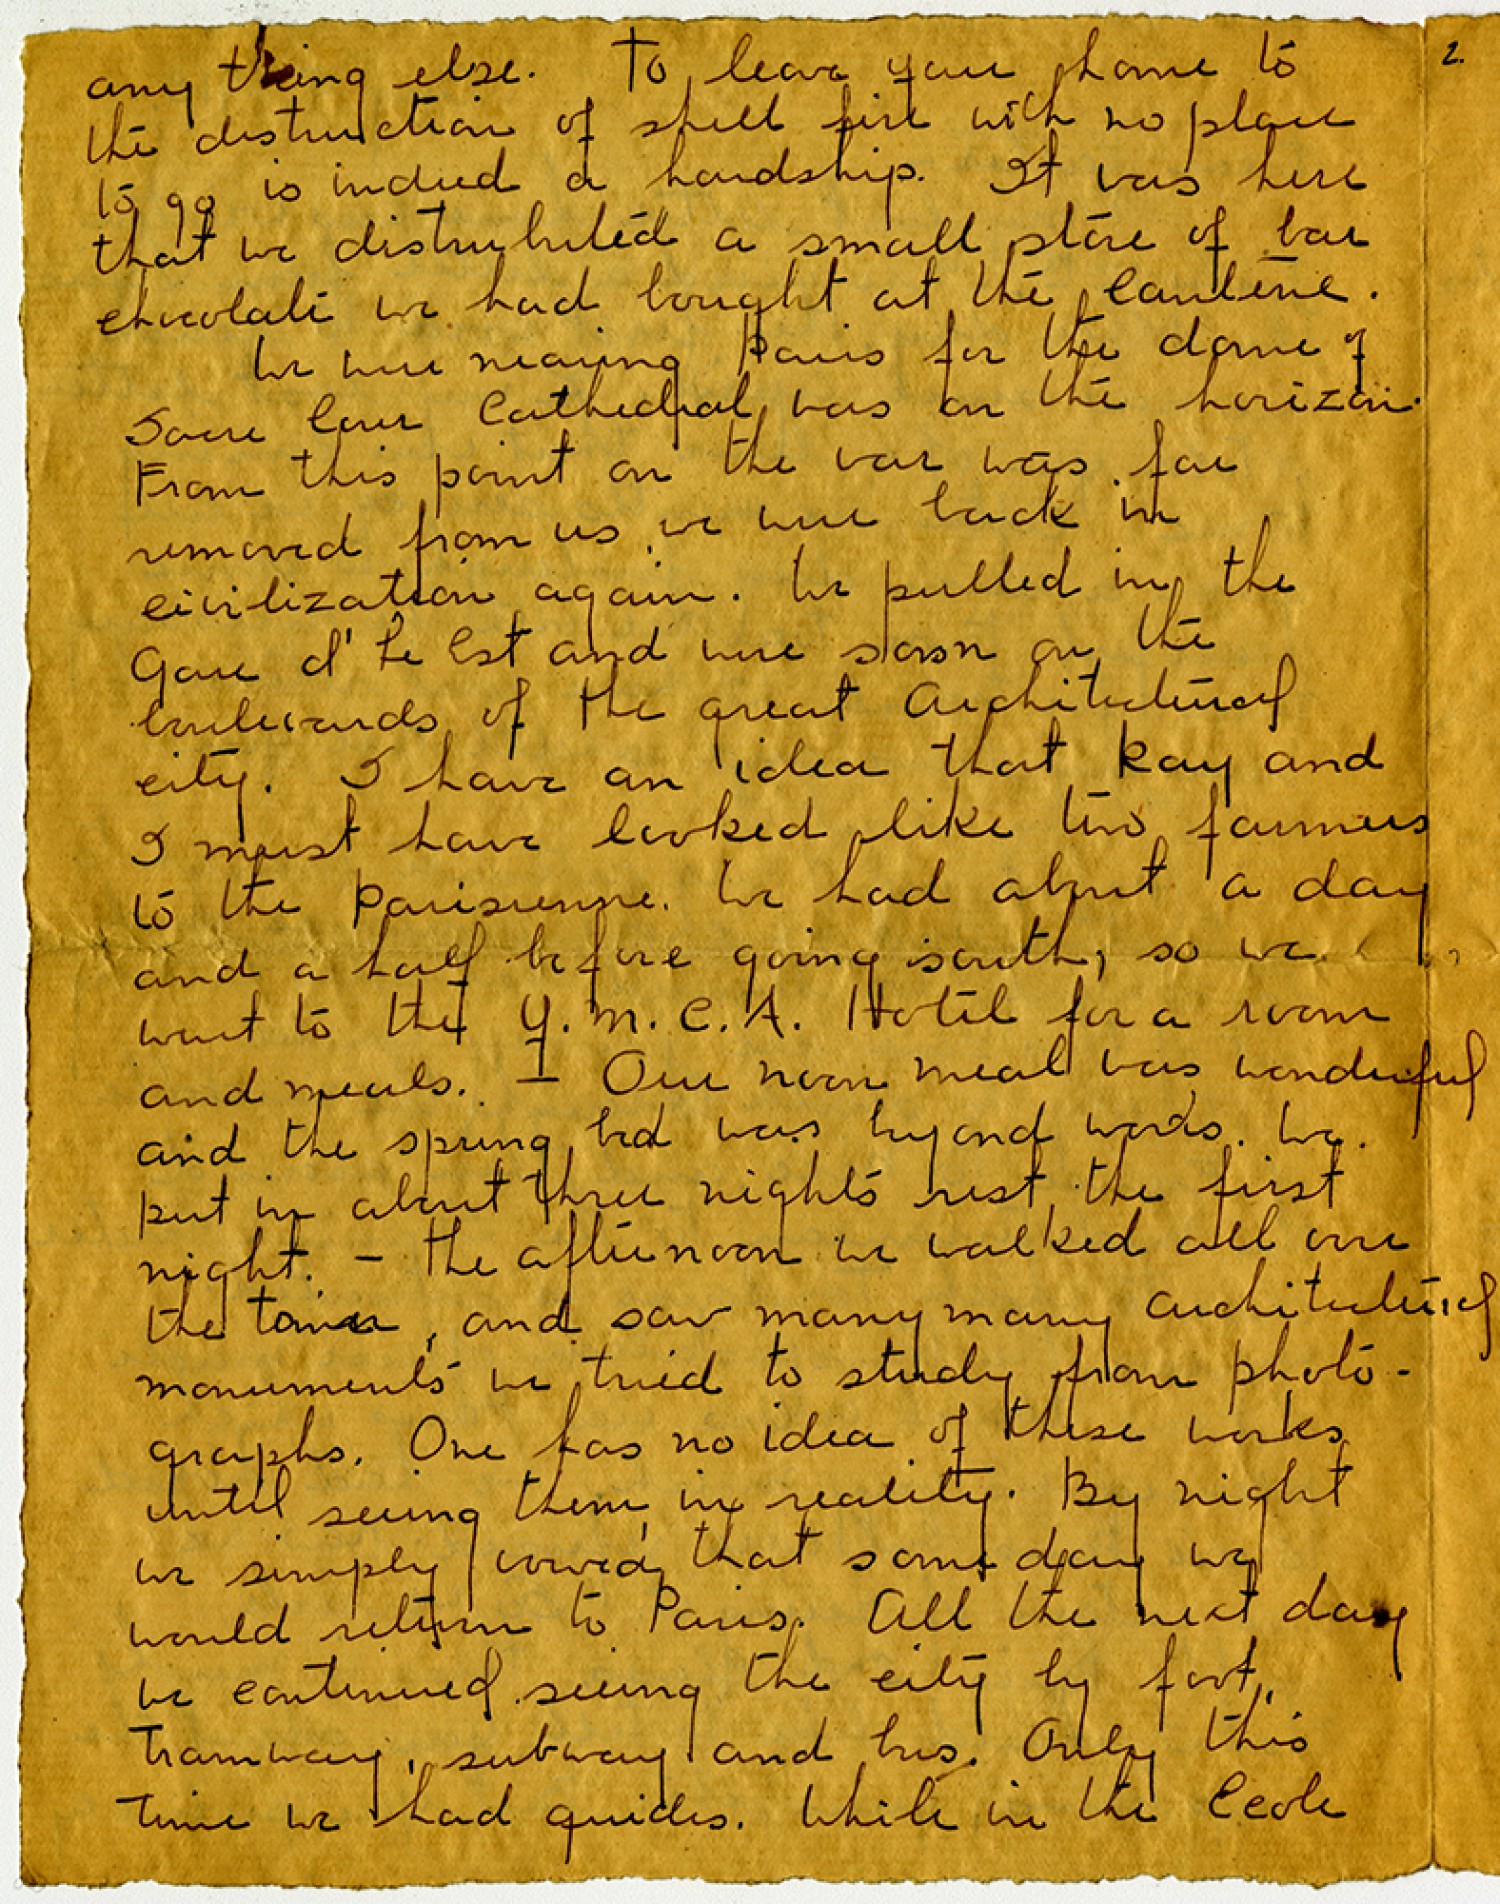 2.
any thing else. To leave your home to
the distruction of shell fire with no place
to go is indeed a hardship. It was here
that we distrubuted a small store of bar
chocolate we had bought at the Cantene.
We were nearing Paris for the dome of
Sacre Ceur Cathedral was on the horizon.
From this point on the war was far
removed from us, we were back in
civilization again. We pulled in the
Gare d' Le Est and were soon on the
boulevards of the great Architectural
city. I have an idea that Kay and
I must have looked like two farmers
to the Parisienne. We had about a day
and a half before going south, so we
went to the Y.M.C.A. Hotel for a room
and meals. – Our noon meal was wonderful
and the spring bed was beyond words. We
put in about three nights rest the first
night. – The afternoon we walked all over
the town, and saw many many architectural
monuments we tried to study from photo-
graphs. One has no idea of these works
until seeing them in reality. By night
we simply vowed that some day we
would return to Paris. All the next day
we continued seeing the city by foot,
Tramway, subway and bus. Only this
time we had guides. While in the Ecole